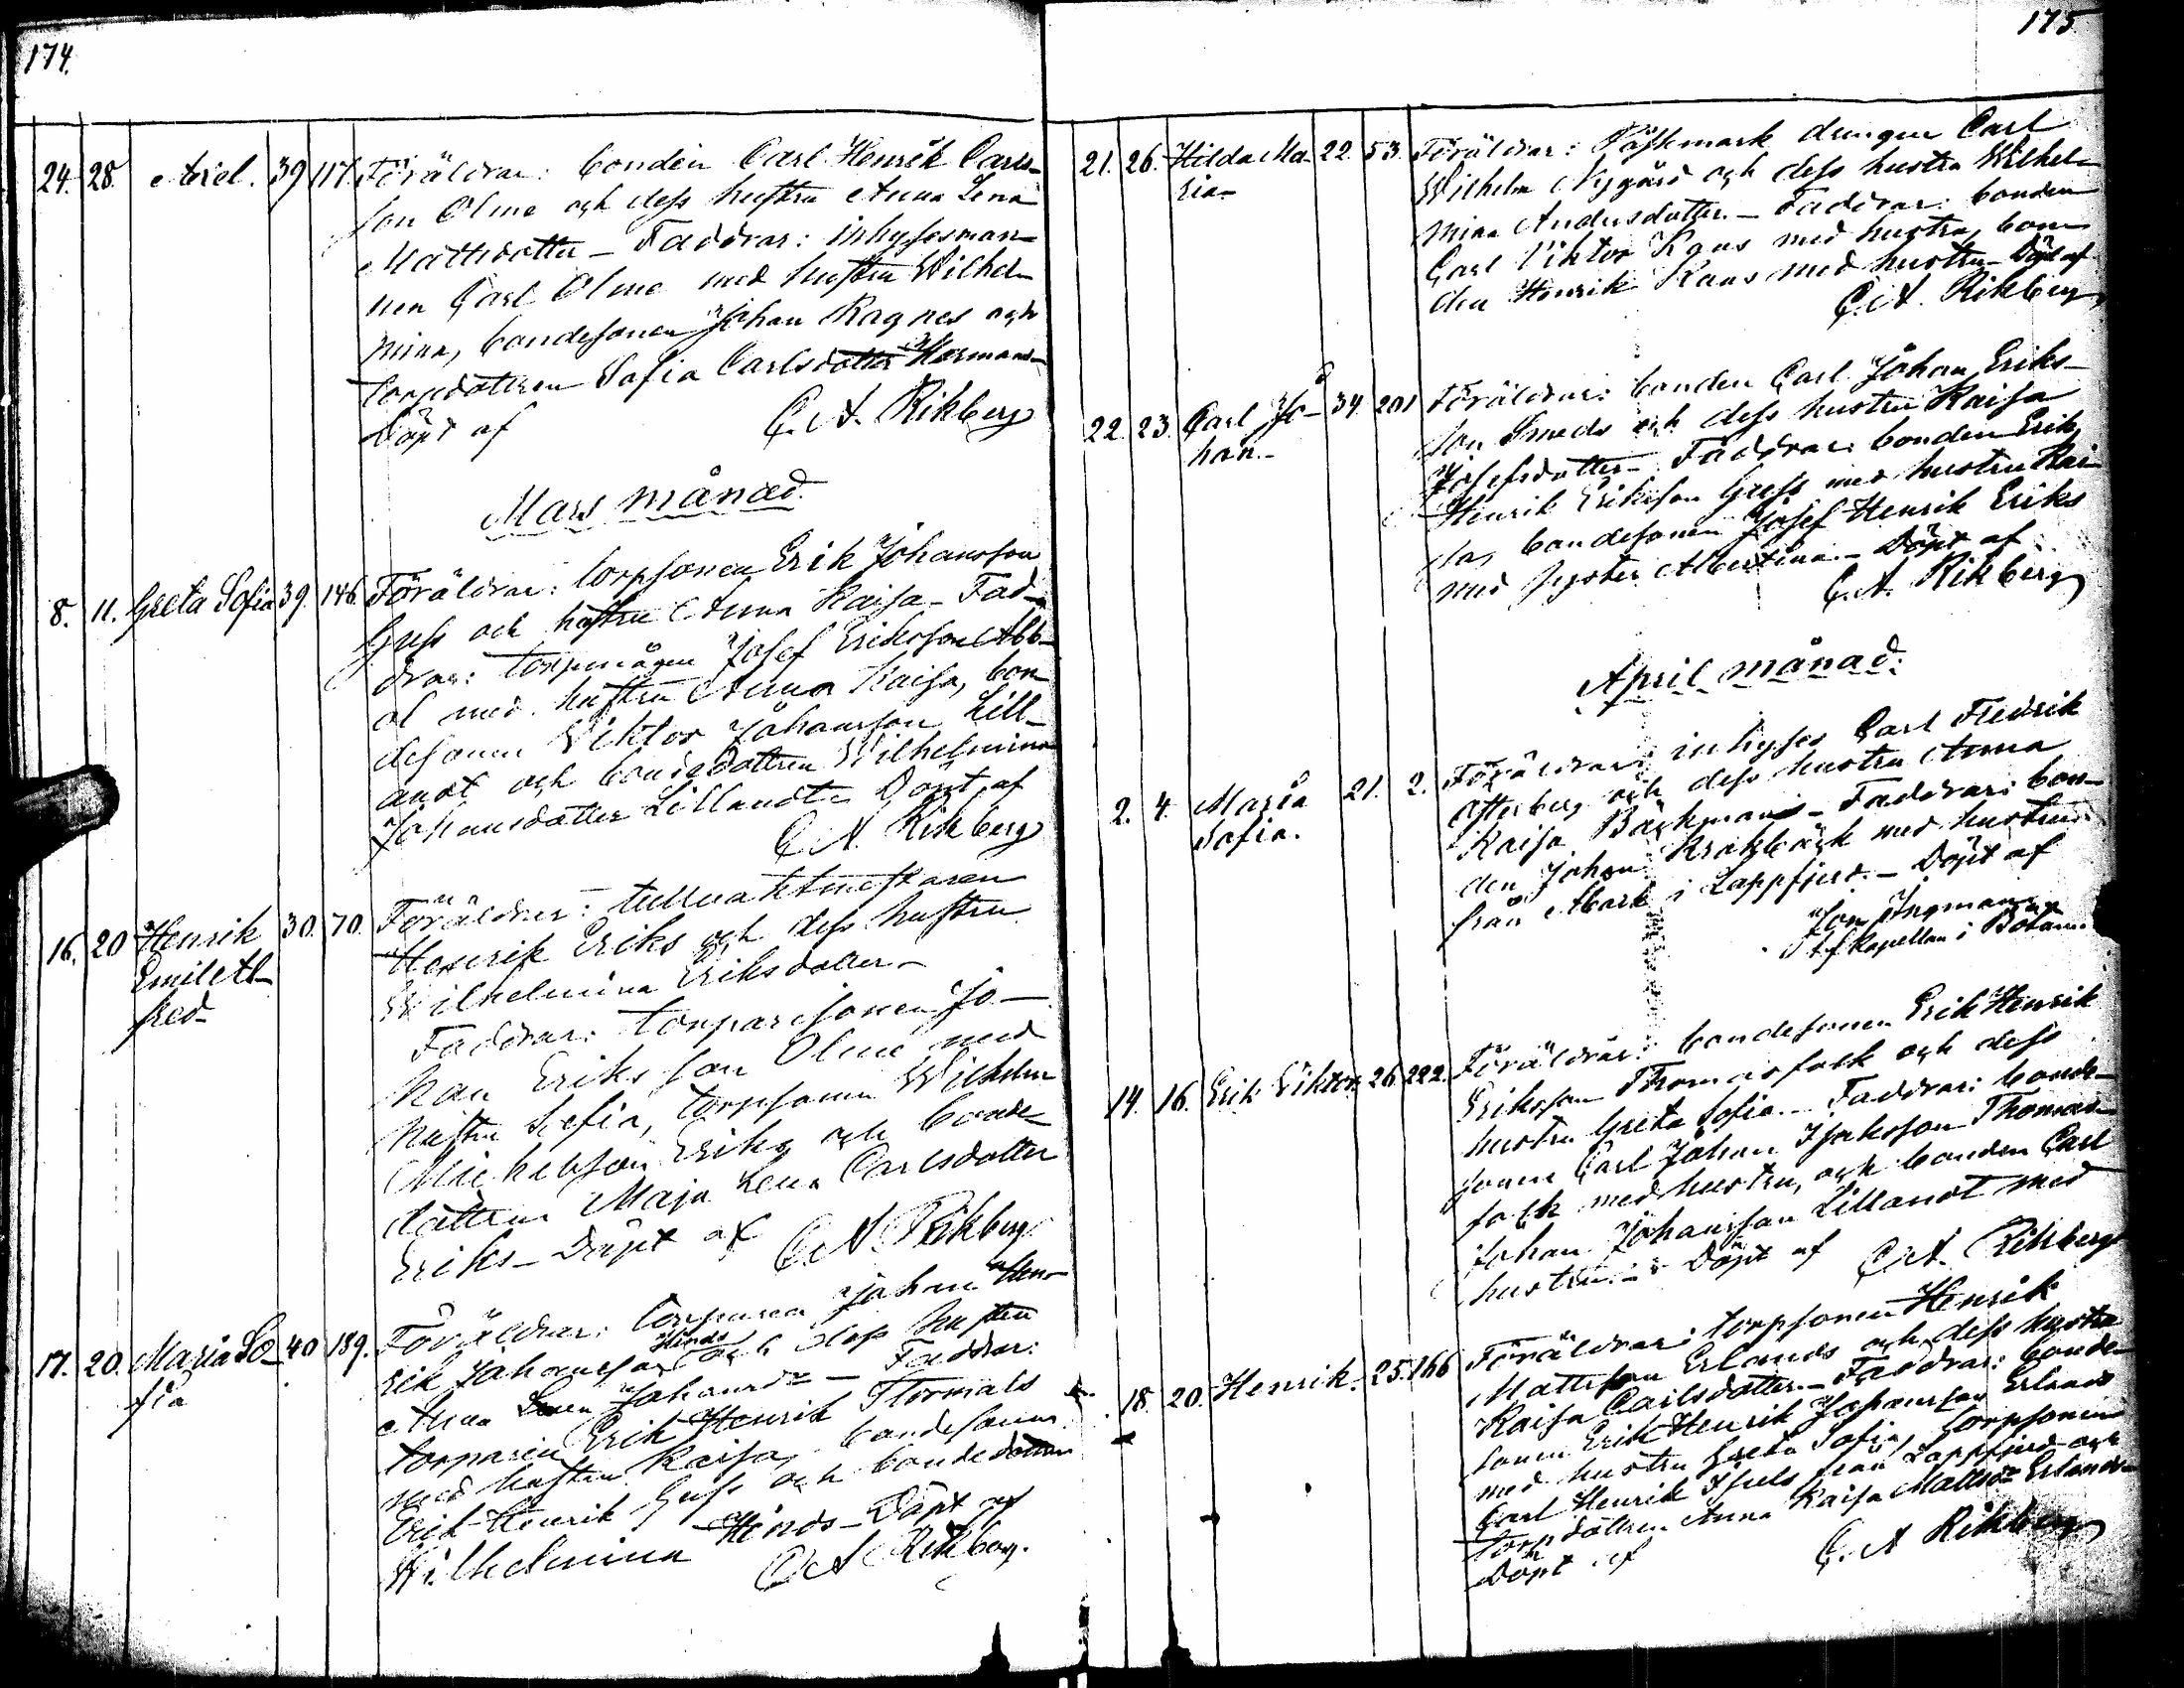 174.
24. 28. Axel. 39 117. Föräldrar: bonden Carl Henrik Carls-
son Olme och dess hustru Anna Lena
Mattsdotter – Faddrar: inhysesman-
nen Carl Olme med hustru Wilhel-
mina, bondesonen Johan Ragnes och
torpdottren Sofia Carlsdotter Hermans-
Döpt af C. A. Rikberg
Mars månad.
8. 11. Greta Sofia 39. 146. Föräldrar: torpsonen Erik Johansson
Guss och hustru Anna Kaisa – Fad-
drar: torpmågen Josef Eriksson Abb-
ol med hustru Anna Kaisa, bon-
desonen Viktor Johansson Lill-
andt och bondedottren Wilhelmina
Johansdotter Lillandt – Döpt af
C. A. Rikberg
16. 20 Henrik 30. 70. Föräldrar:
Emil Al-
fred
Henrik Eriks och dess hustru
Wilhelmina Eriksdotter –
Faddrar: torparesonen Jo-
han Eriksson Olme med
hustru Sofia, torpsonen Wilhelm
Mickelsson Eriks och bonde
dottren Maja Lena Carlsdotter
Eriks – Döpt af C. A. Rikberg
17. 20. Maria So- 40 189. Föräldrar: torparen Johan Hen-
fia
rik Johansson Hinds och dess hustru
Anna Lena Johansdr – Faddrar:
torparen Erik Henrik Stormals
med hustru Kaisa, bondesonen
Erik Henrik Guss och bondedottren
Wilhelmina Hinds – Döpt af
C. A. Rikberg.
175.
21. 26. Hilda Ma- 22. 53. Föräldrar: Påskmark drengen Carl
ria –
Wilhelm Nygård och dess hustru Wilhel-
mina Andersdotter. – Faddrar: bonden
Carl Viktor Kaas med hustru, bon-
den Henrik Kaas med hustru – Döpt af
C. A. Rikberg
22. 23. Carl Jo- 34. 201 Föräldrar: bonden Carl Johan Eriks-
han. –
son Smeds och dess hustru Kaisa
Josefsdotter – Faddrar: bonden Erik
Henrik Eriksson Guss med hustru Kai-
sa, bondesonen Josef Henrik Eriks
med syster Albertina. – Döpt af
C. A. Rikberg
April månad:
2. 4. Maria 21. 2. Föräldrar: inhyses Carl Fredrik
Sofia.
Åkerberg och dess hustru Anna
Kaisa Bäckman – Faddrar: bon-
den Johan Kråkbäck med hustru
från Mark i Lappfjerd. – Döpt af
Jon Ingman
kapellan i Bötom.
14. 16. Erik Viktor. 26. 222. Föräldrar: bondesonen Erik Henrik
Eriksson Thomasfolk och dess
hustru Greta Sofia. – Faddrar: bonde-
sonen Carl Johan Isaksson Thomas-
folk med hustru, och bonden Carl
Johan Johansson Lillandt med
hustru. – Döpt af C. A. Rikberg
18. 20. Henrik. 25. 166 Föräldrar: torpsonen Henrik
Mattsson Erlands och dess hustru
Kaisa Carlsdotter. – Faddrar: bonde-
sonen Erik Henrik Johansson Erlands
med hustru Greta Sofia, torpsonen
Carl Henrik Ifuls från Lappfjerd och
torpdottren Anna Kaisa Mattsdr Erlands –
Döpt af C. A. Rikberg